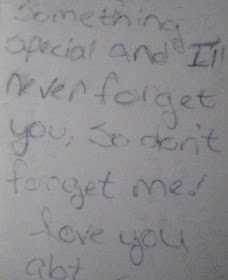 Something
special and I'll
never forget
you, So don't
forget me!
love you